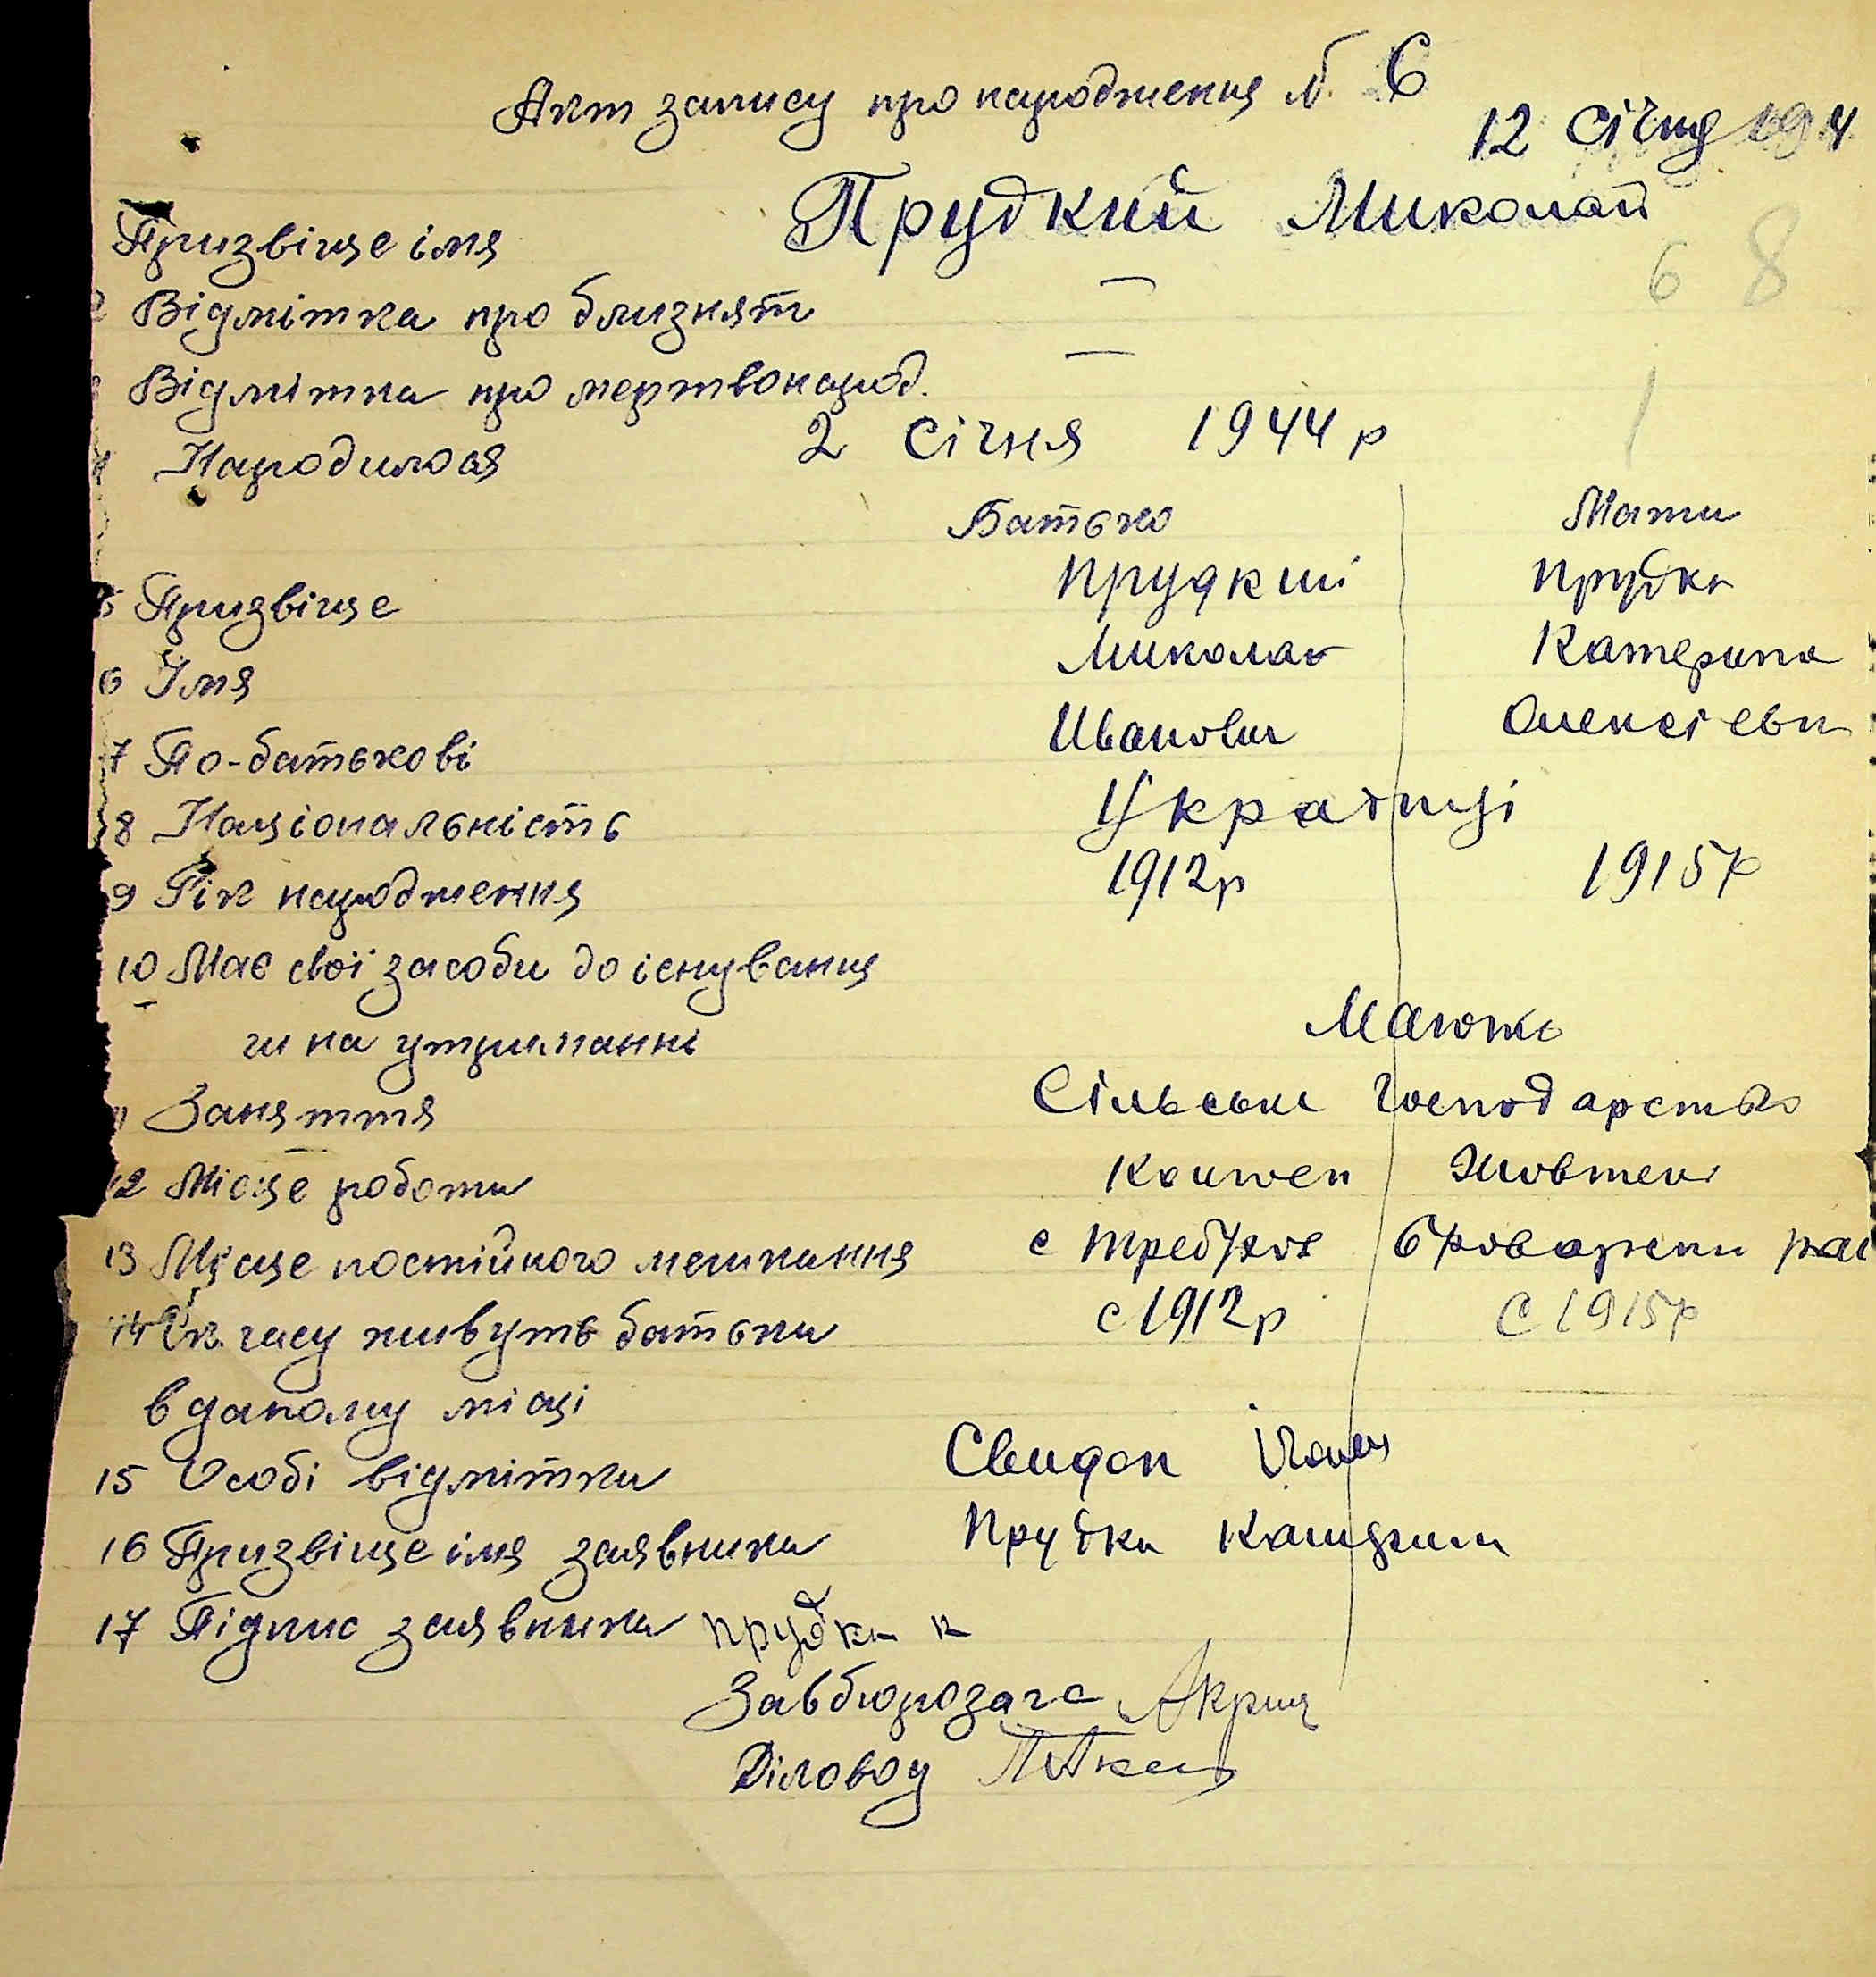 Акт запису про народження № 6
12 Січня 194
Призвіще імя Прудкий Миколай
6 8
2 Відмітка про близнят —
3 Відмітка про мертвонарод. —
4 Народилося 2 Січня 1944 р
1
Батько Мати
5 Призвіще Прудкий Прудка
6 Імя Миколай Катерина
7 По-батькові Иванович Олексієвн
8 Національність Українці
9 Рік народження 1912р 1915р
10 Має свої засоби до існування
чи на утриманні Мають
11 Заняття Сільське господарство
12 Місце роботи Колгосп Жовтень
13 Місце постійного мешкання с Требухов Броварськ рай
14 Як. часу живуть батьки с 1912р с 1915р
в даному місці
15 Особі відмітки Свидок
16 Призвіще імя заявника Прудка Катерина
17 Підпис заявника Прудка К
Завбюрозагс
Діловод